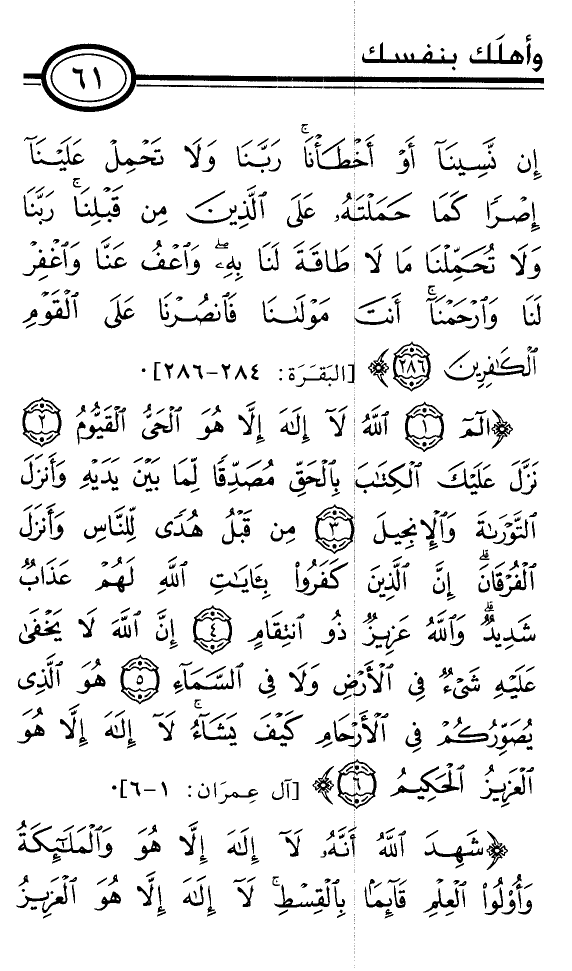 وأهلَك بنفسك
٦١
إِن نَّسِينَآ أَوْ أَخْطَأْنَاۚ رَبَّنَا وَلَا تَحْمِلْ عَلَيْنَآ
إِصْرًا كَمَا حَمَلْتَهُۥ عَلَى ٱلَّذِينَ مِن قَبْلِنَاۚ رَبَّنَا
وَلَا تُحَمِّلْنَا مَا لَا طَاقَةَ لَنَا بِهِۦۖ وَٱعْفُ عَنَّا وَٱغْفِرْ
لَنَا وَٱرْحَمْنَآۚ أَنتَ مَوْلَىٰنَا فَٱنصُرْنَا عَلَى ٱلْقَوْمِ
ٱلْكَٰفِرِينَ ٢٨٦﴾ [البَقَرَة: ٢٨٤-٢٨٦].
﴿الٓمٓ ١ ٱللَّهُ لَآ إِلَٰهَ إِلَّا هُوَ ٱلْحَىُّ ٱلْقَيُّومُ ٢
نَزَّلَ عَلَيْكَ ٱلْكِتَٰبَ بِٱلْحَقِّ مُصَدِّقًا لِّمَا بَيْنَ يَدَيْهِ وَأَنزَلَ
ٱلتَّوْرَىٰةَ وَٱلْإِنجِيلَ ٣ مِن قَبْلُ هُدًى لِّلنَّاسِ وَأَنزَلَ
ٱلْفُرْقَانَۗ إِنَّ ٱلَّذِينَ كَفَرُوا۟ بِـَٔايَٰتِ ٱللَّهِ لَهُمْ عَذَابٌ
شَدِيدٌۗ وَٱللَّهُ عَزِيزٌ ذُو ٱنتِقَامٍ ٤ إِنَّ ٱللَّهَ لَا يَخْفَىٰ
عَلَيْهِ شَىْءٌ فِى ٱلْأَرْضِ وَلَا فِى ٱلسَّمَآءِ ٥ هُوَ ٱلَّذِى
يُصَوِّرُكُمْ فِى ٱلْأَرْحَامِ كَيْفَ يَشَآءُۚ لَآ إِلَٰهَ إِلَّا هُوَ
ٱلْعَزِيزُ ٱلْحَكِيمُ ٦﴾ [آل عِمرَان: ١-٦].
﴿شَهِدَ ٱللَّهُ أَنَّهُۥ لَآ إِلَٰهَ إِلَّا هُوَ وَٱلْمَلَٰٓئِكَةُ
وَأُو۟لُوا۟ ٱلْعِلْمِ قَآئِمًۢا بِٱلْقِسْطِۚ لَآ إِلَٰهَ إِلَّا هُوَ ٱلْعَزِيزُ